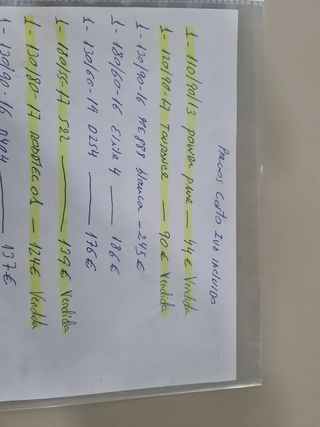 Precios Costo IVA incluido
1- 110/90/13 power pure — 44€ Vendida
1- 120/90-17 Tourance — 90€ Vendida
1- 130/90-16 ME888 blanca - 245€
1- 180/60-16 Elite 4 — 186€
1- 130/60-19 D254 — 176€
1- 120/55-17 S22 — 139€ Vendida
1- 130/80-17 ROADTEC 01 — 124€ Vendida
1- 130/90-16 D404 — 137€